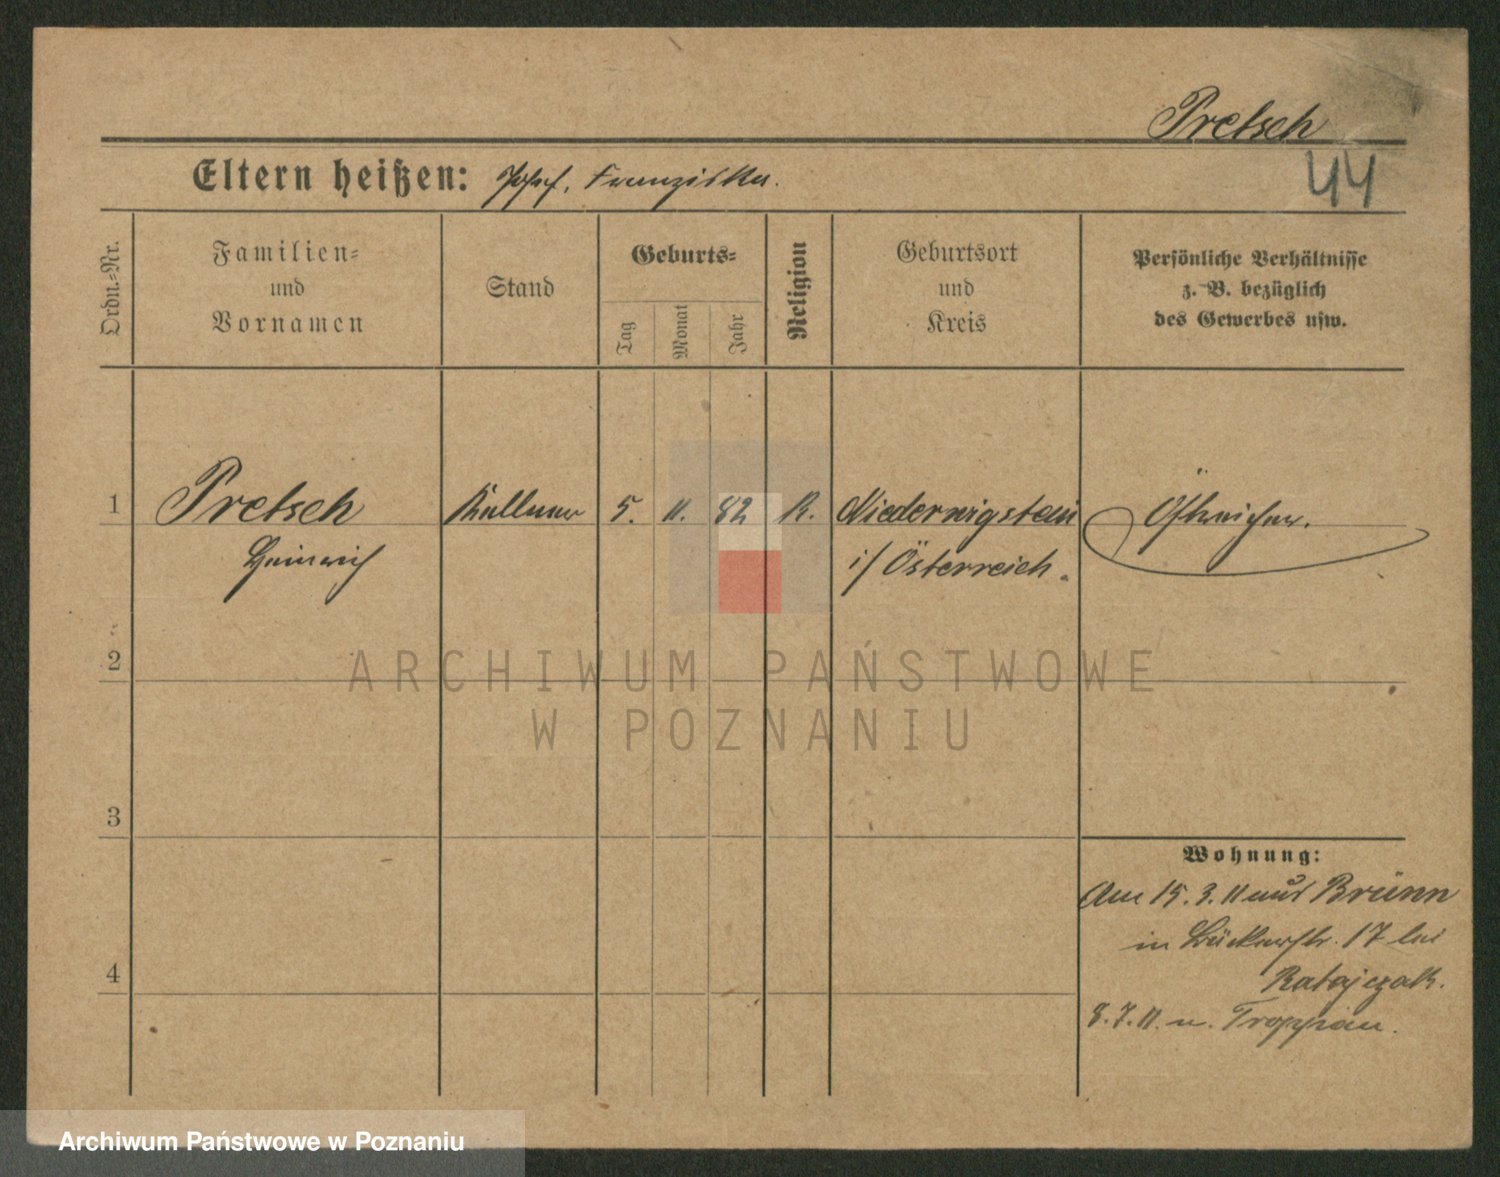 Pretsch
44
Eltern heißen: Josef, Franziska.
Ordn.-Nr.
Familien-
und
Vornamen
Stand
Geburts-
Tag
Monat
Jahr
Religion
Geburtsort
und
Kreis
Persönliche Verhältnisse
z. B. bezüglich
des Gewerbes usw.
1 Pretsch Kellner 5. 11. 82 K. Niederwigstein Östreicher.
Heinrich i/ Österreich.
2
ARCHIWUM PAŃSTWOWE
W POZNANIU
3
Wohnung:
Am 15.3.11 aus Brünn
in Bäckerstr. 17 bei
4
Ratajczak.
8.7.11. n. Troppau.
Archiwum Państwowe w Poznaniu